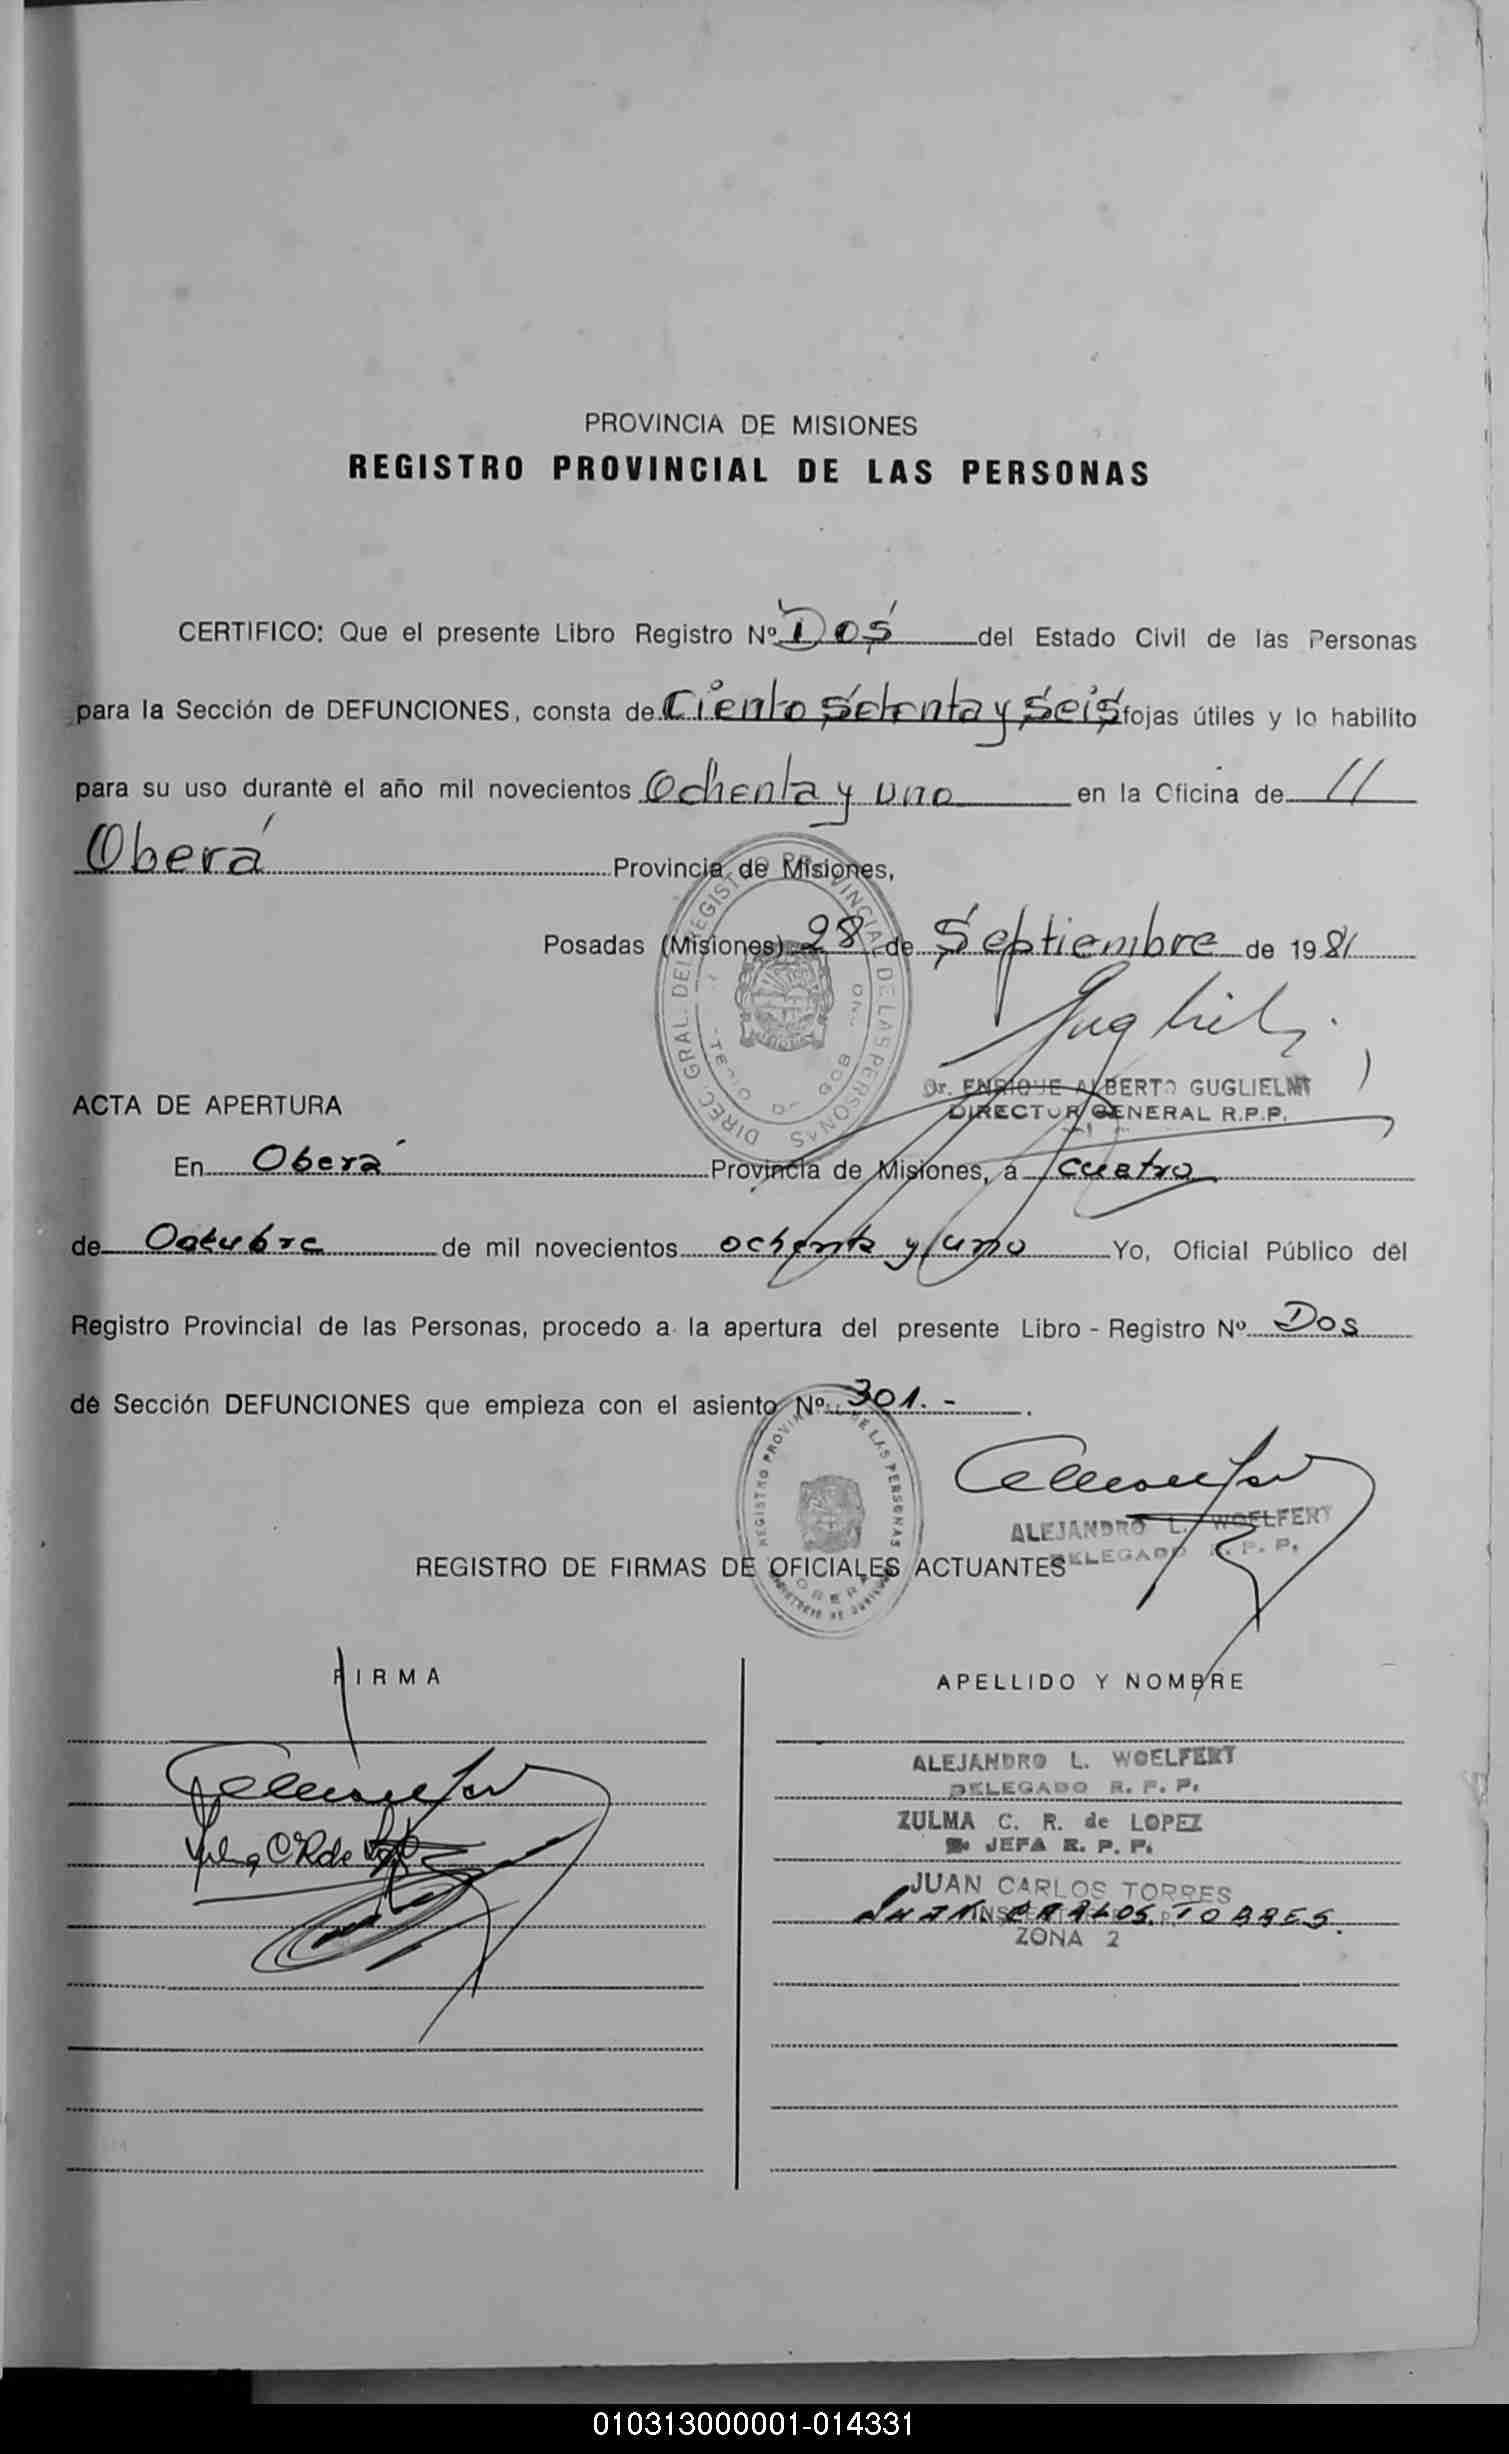 PROVINCIA DE MISIONES
REGISTRO PROVINCIAL DE LAS PERSONAS
CERTIFICO: Que el presente Libro Registro Nº Dos del Estado Civil de las Personas
para la Sección de DEFUNCIONES, consta de Ciento Setenta y Seis fojas útiles y lo habilito
para su uso durante el año mil novecientos Ochenta y uno en la Oficina de //
Oberá Provincia de Misiones,
Posadas (Misiones) 28 de Septiembre de 1981
DIREC. GRAL. DEL REGISTRO PROVINCIAL DE LAS PERSONAS
Dr. ENRIQUE ALBERTO GUGLIELMI
DIRECTOR GENERAL R.P.P.
ACTA DE APERTURA
En Oberá Provincia de Misiones, a cuatro
de Octubre de mil novecientos ochenta y uno Yo, Oficial Público del
Registro Provincial de las Personas, procedo a la apertura del presente Libro - Registro Nº Dos
de Sección DEFUNCIONES que empieza con el asiento Nº 301.-
REGISTRO PROVINCIAL DE LAS PERSONAS
OBERA
ALEJANDRO L. WOELFERT
DELEGADO R. P. P.
REGISTRO DE FIRMAS DE OFICIALES ACTUANTES
FIRMA APELLIDO Y NOMBRE
ALEJANDRO L. WOELFERT
DELEGADO R. P. P.
ZULMA C. R. de LOPEZ
JEFA R. P. P.
JUAN CARLOS TORRES
JUAN CARLOS TORRES.
ZONA 2
010313000001-014331